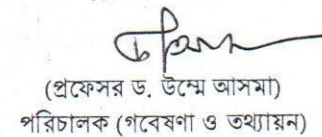 (প্রফেসর ড. উম্মে আসমা)
পরিচালক (গবেষণা ও তথ্যায়ন)